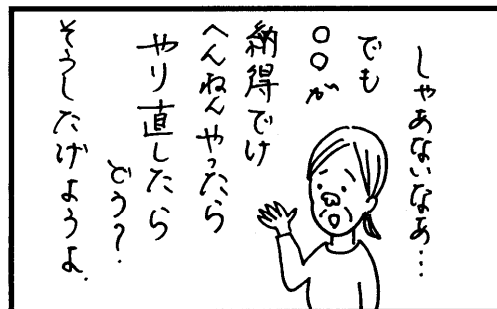 しゃあないなあ…
でも
○○が
納得でけ
へんねんやったら
やり直したら
どう？
そうしたげようよ。